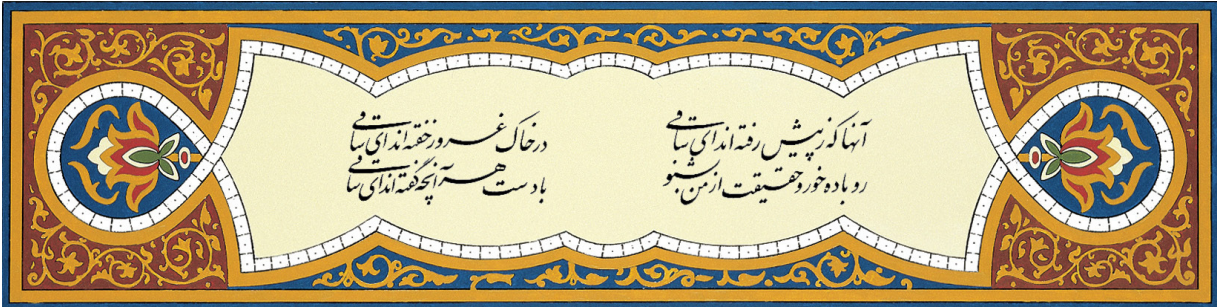 آنها که ز پیش رفته‌اند ای ساقی
در خاک غرور خفته‌اند ای ساقی
رو باده خور و حقیقت از من بشنو
باد است هر آنچه گفته‌اند ای ساقی